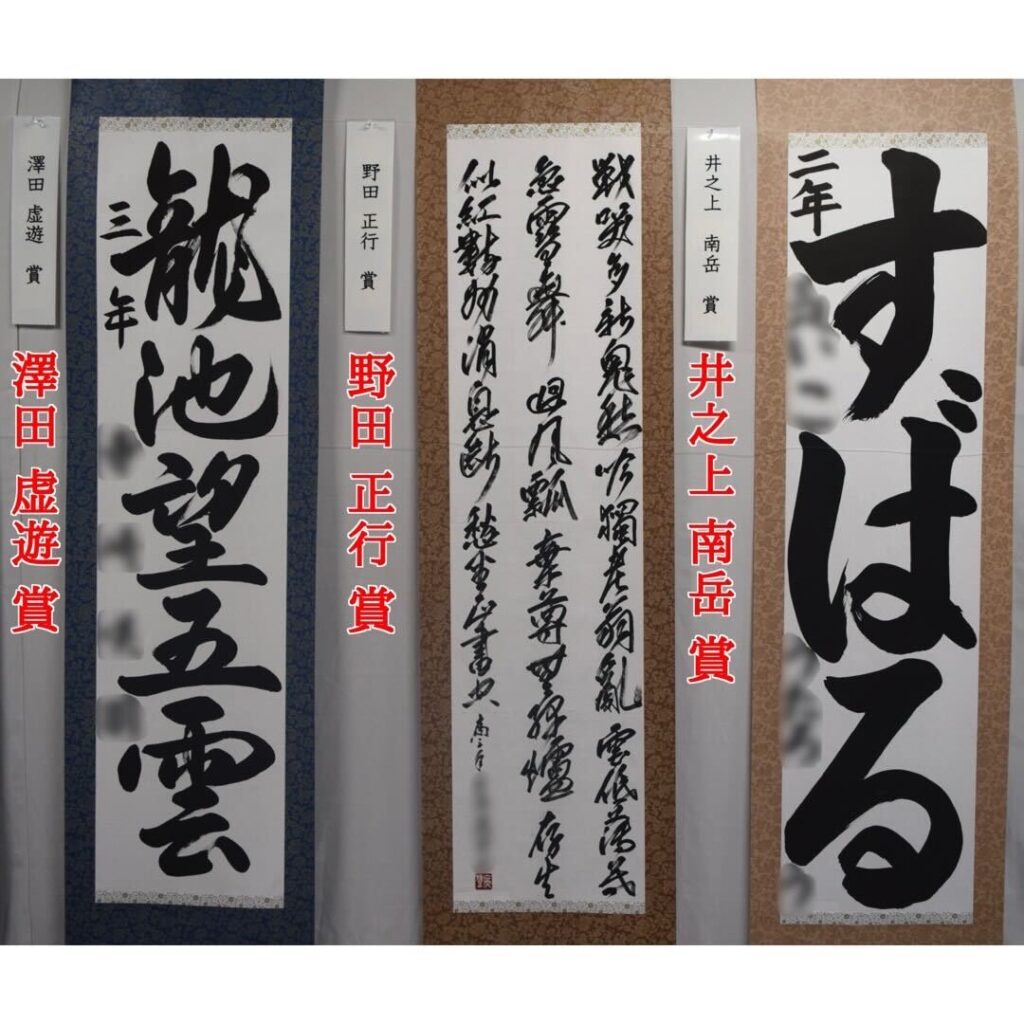 すばる
二年
井之上 南岳 賞
井之上 南岳 賞
戰哭多新鬼愁吟獨老翁亂雲低薄暮
急雪舞廻風瓢棄尊無緑爐存火
似紅數州消息断愁坐正書空
野田 正行 賞
野田 正行 賞
龍池望五雲
三年
澤田 虚遊 賞
澤田 虚遊 賞